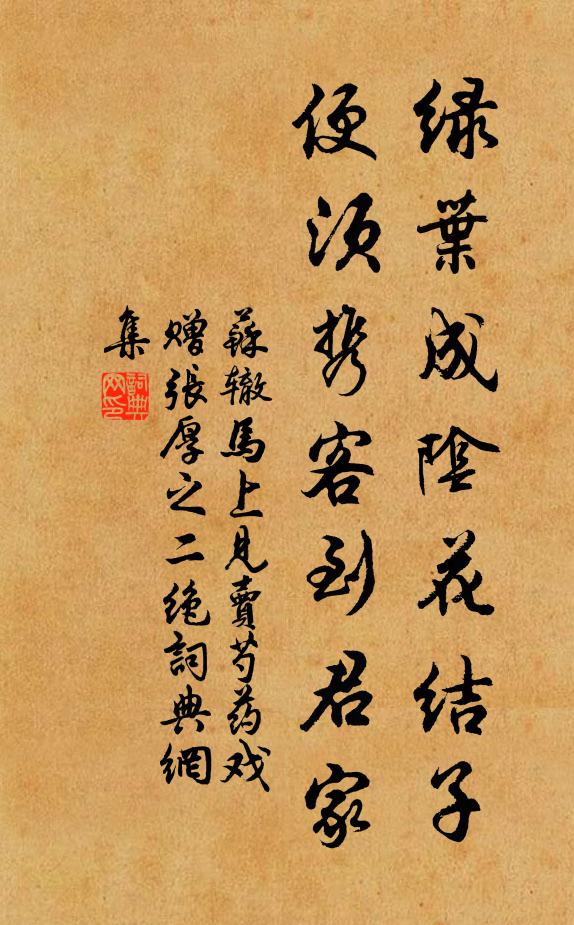 绿葉成陰花结子
便须携客到君家
蘇辙馬上見賣芍药戏
赠張厚之二絶詞典網
集
詞典
网印